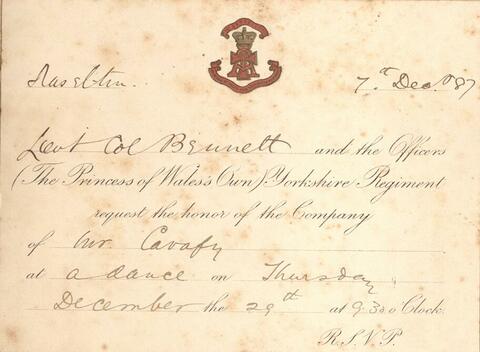 7th Dec. 87
Lieut Col Bennett and the Officers
(The Princess of Wales's Own) Yorkshire Regiment
request the honor of the Company
of Mr. Cavafy
at a dance on Thursday
December the 29th at 9.30 o'Clock.
R.S.V.P.